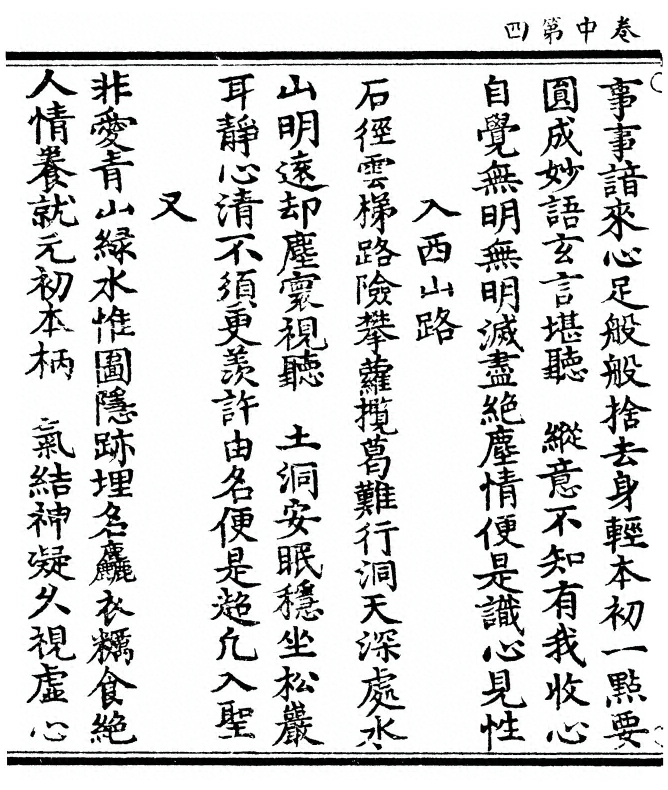 卷中第四
事事諳來心足般般捨去身輕本初一點要
圓成妙語玄言堪聽　縱意不知有我收心
自覺無明無明滅盡絕塵情便是識心見性
入西山路
石徑雲梯路險攀蘿攬葛難行洞天深處水
山明遠却塵寰視聽　土洞安眠穩坐松巖
耳靜心清不須更羨許由名便是超凢入聖
又
非愛青山緑水惟圖隱跡埋名麤衣糲食絕
人情養就元初本柄　氣結神凝久視虛心